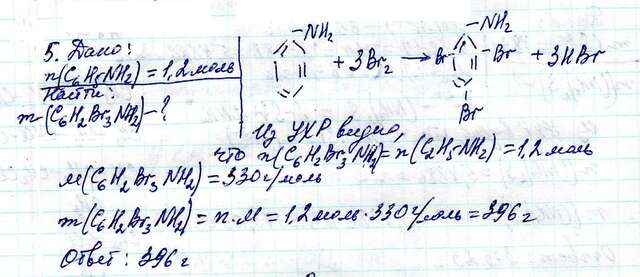 5. Дано:
n(C6H5NH2) = 1,2 моль
Найти:
m(C6H2Br3NH2) - ?
-NH2
+ 3Br2 → Br- -NH2 -Br Br + 3HBr
Из УХР видно,
что n(C6H2Br3NH2) = n(C2H5-NH2) = 1,2 моль
M(C6H2Br3NH2) = 330 г/моль
m(C6H2Br3NH2) = n·M = 1,2 моль·330 г/моль = 396 г
Ответ: 396 г